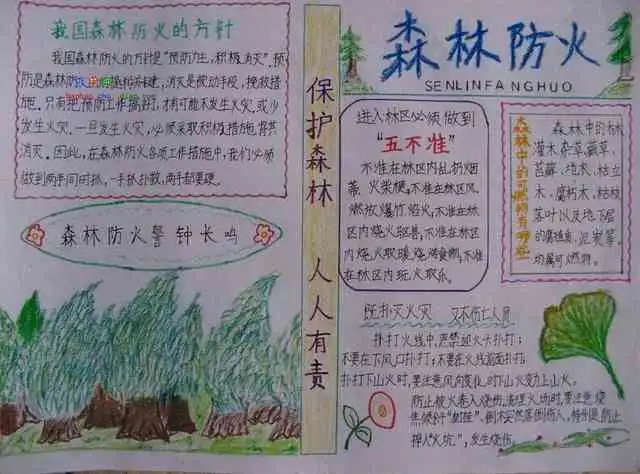 我国森林防火的方针
我国森林防火的方针是"预防为主,积极消灭".预
防是森林防火的前提和关键,消灭是被动手段,挽救措
施.只有把"预防"工作搞好,才有可能不发生火灾,或少
发生火灾.一旦发生火灾,必须采取积极措施,
消灭.因此,在森林防火各项工作措施中,我们必须
做到两手同时抓,一手抓扑救,两手都要硬.
森林防火警钟长鸣
保护森林 人人有责
森林防火
SENLINFANGHUO
进入林区必须做到
"五不准"
不准在林区内乱扔烟
蒂、火柴梗;不准在林区
燃放爆竹焰火;不准在林
区内烧火驱兽;不准在林区
内烧火取暖烧烤食物;不准
在林区内玩火取乐.
森林中的可燃物有哪些
森林中的
灌木、杂草、蕨草、
苔藓、地衣、枯立
木、腐朽木、枯枝
落叶以及地下层
的腐殖质、泥炭等,
均属可燃物.
既扑灭火灾 又不伤亡人员
扑打火线中,严禁迎火头扑打;
不要在下风口扑打;不要在火线前面扑打;
扑打下山火时,要注意风向变化,时下山火变为上山火.
防止被火卷入烧伤,清理火场时,要注意烧
焦倾斜"",倒木突然落倒伤人,特别是防止
掉入"火坑",发生烧伤.